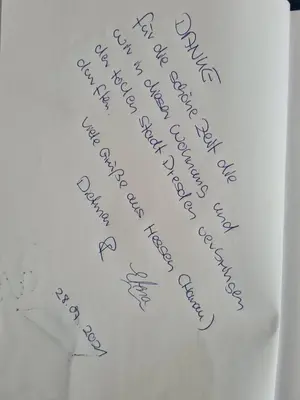 DANKE
für die schöne Zeit die
wir in dieser Wohnung und
der tollen Stadt Dresden verbringen
durften.
Viele Grüße aus Hessen (Hanau)
Dietmar &
28.07.2021